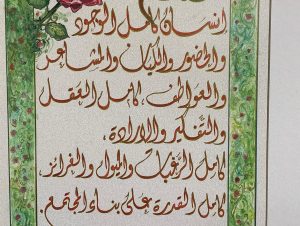 إنسان كامل الوجود
والحضور والكيان والمشاعر
والعواطف، كامل العقل
والتفكير والإرادة،
كامل الرغبات والميول والغرائز،
كامل القدرة على بناء المجتمع.